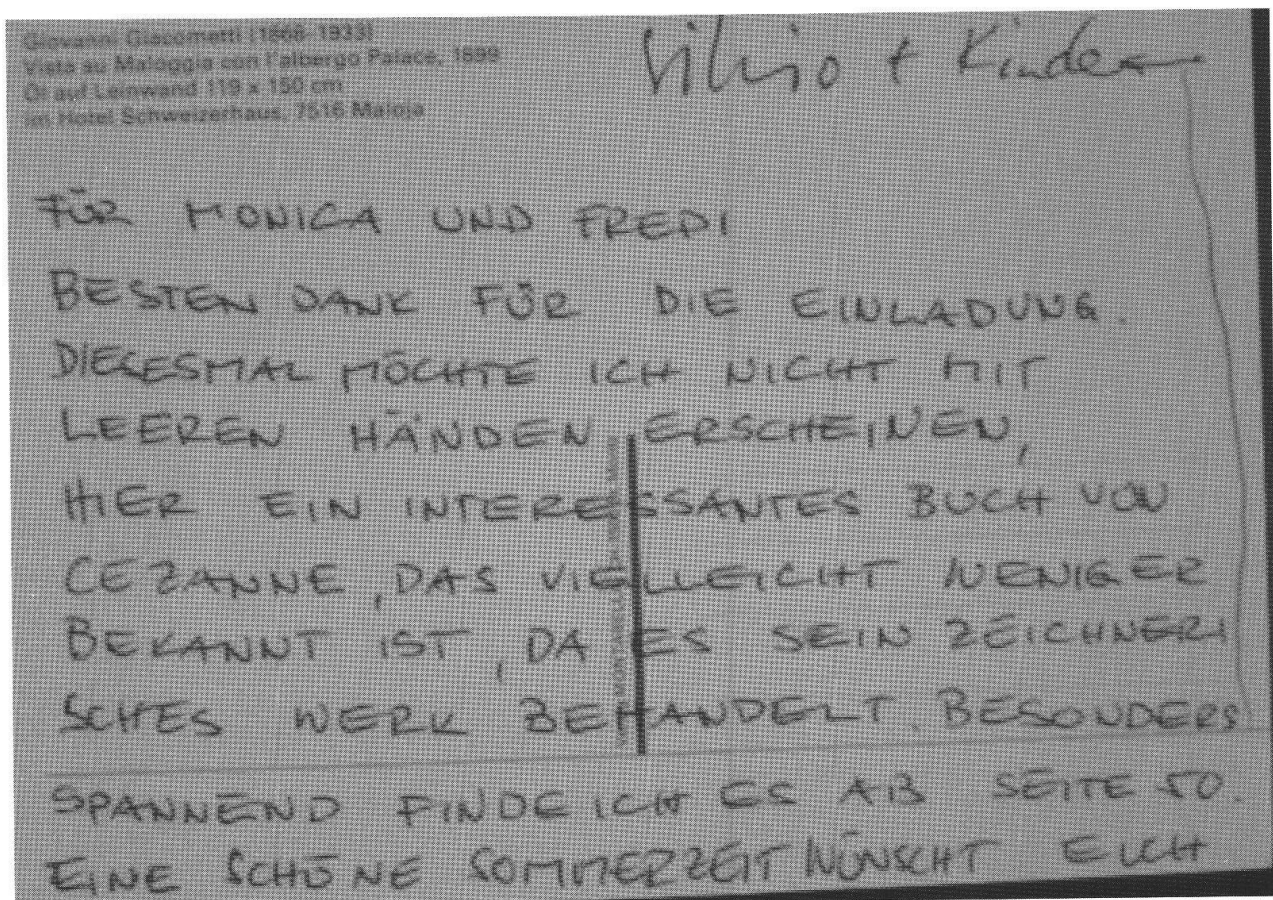 Giovanni Giacometti (1868-1933)
Vista su Maloggia con l'albergo Palace, 1899
Öl auf Leinwand 119 x 150 cm
im Hotel Schweizerhaus, 7516 Maloja
Silvio + Kinder
FÜR MONICA UND FREDI
BESTEN DANK FÜR DIE EINLADUNG.
DIESESMAL MÖCHTE ICH NICHT MIT
LEEREN HÄNDEN ERSCHEINEN,
HIER EIN INTERESSANTES BUCH VON
CEZANNE, DAS VIELLEICHT WENIGER
BEKANNT IST, DA ES SEIN ZEICHNERI
SCHES WERK BEHANDELT. BESONDERS
SPANNEND FINDE ICH ES AB SEITE 50.
EINE SCHÖNE SOMMERZEIT WÜNSCHT EUCH
MONTABELLA